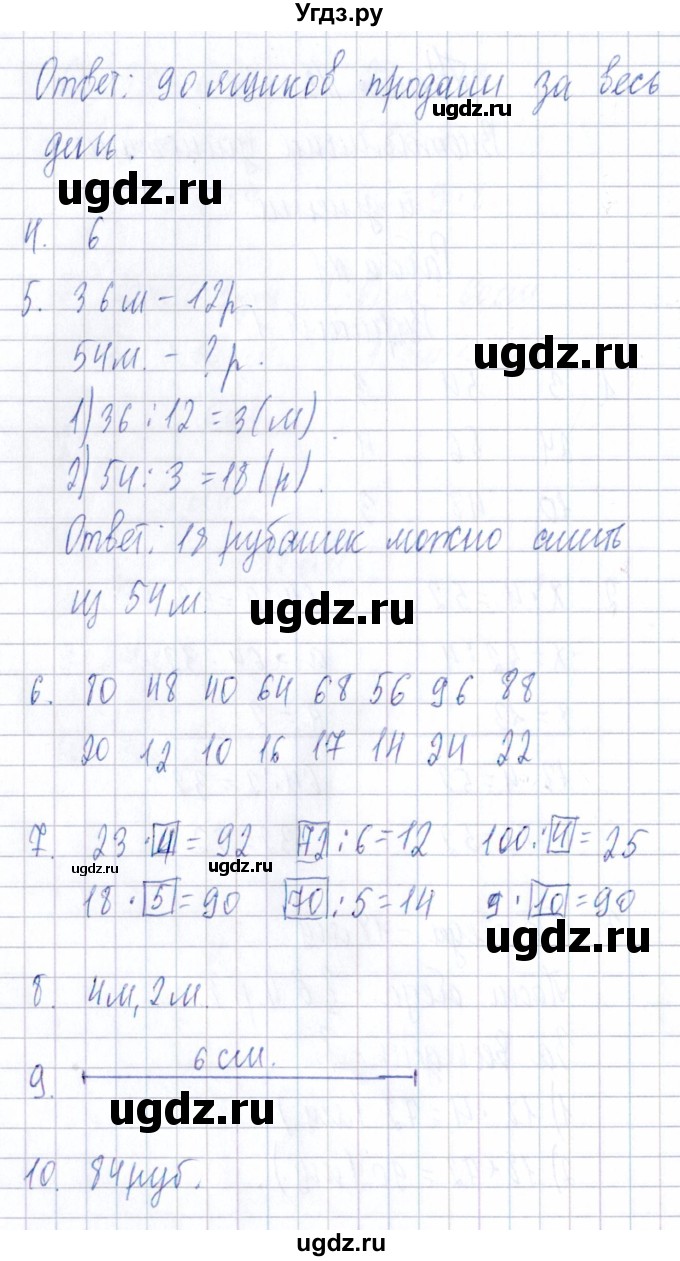 Угдз.ру
Ответ: 90 ящиков продали за весь
ugdz.ru
день.
ugdz.ru
4. 6
5. 36м – 12р.
54м. – ? р.
ugdz.ru
1) 36 : 12 = 3 (м).
2) 54 : 3 = 18 (р).
Ответ: 18 рубашек можно сшить
из 54м.
ugdz.ru
6. 80 48 40 64 68 56 96 88
20 12 10 16 17 14 24 22
7. 23 · 4 = 92 72 : 6 = 12 100 : 4 = 25
ugdz.ru ugdz.ru
18 · 5 = 90 70 : 5 = 14 9 · 10 = 90
ugdz.ru
8. 4м, 2м.
6 см.
9.
ugdz.ru
10. 84 руб.
ugdz.ru